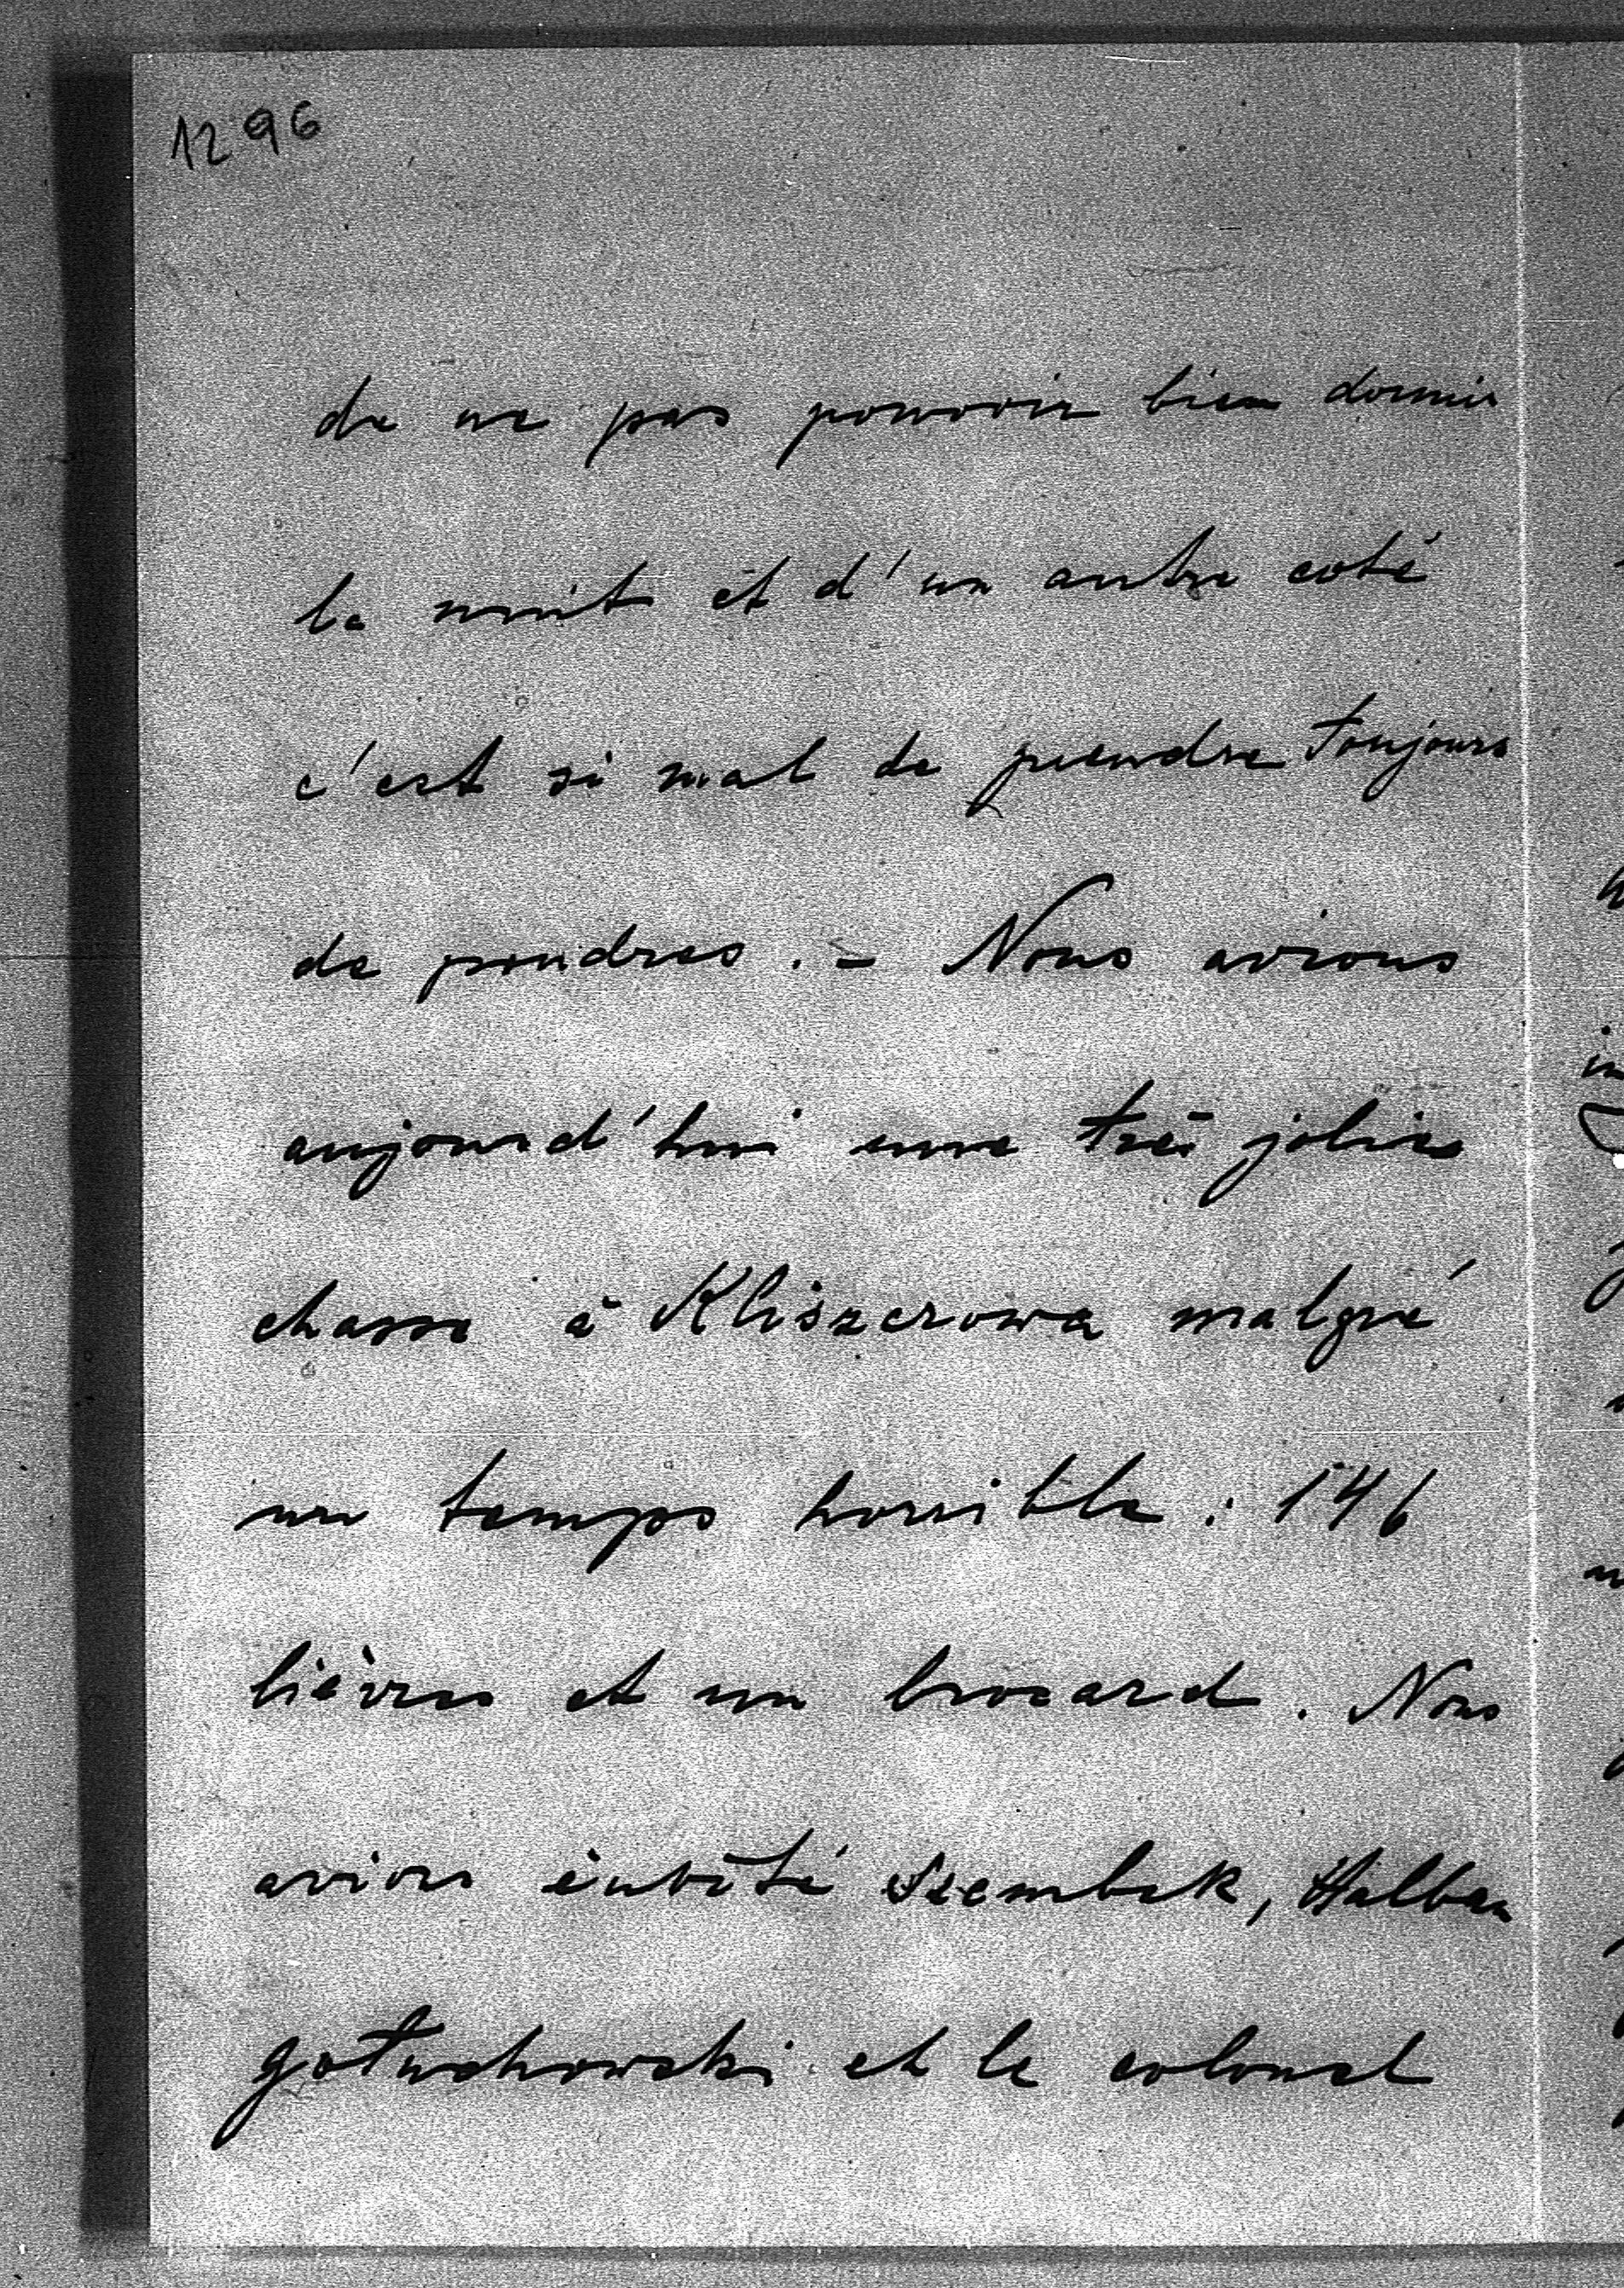 1296
de ne pas pouvoir bien dormir
la nuit et d'un autre coté
c'est si mal de prendre toujours
de poudres. - Nous avions
aujourd'hui une très jolie
chasse à Kliszczrowa malgré
un temps horrible: 146
lièvres et un brocard. Nous
avions invité Szembek, Halban
Gołuchowski et le colonel